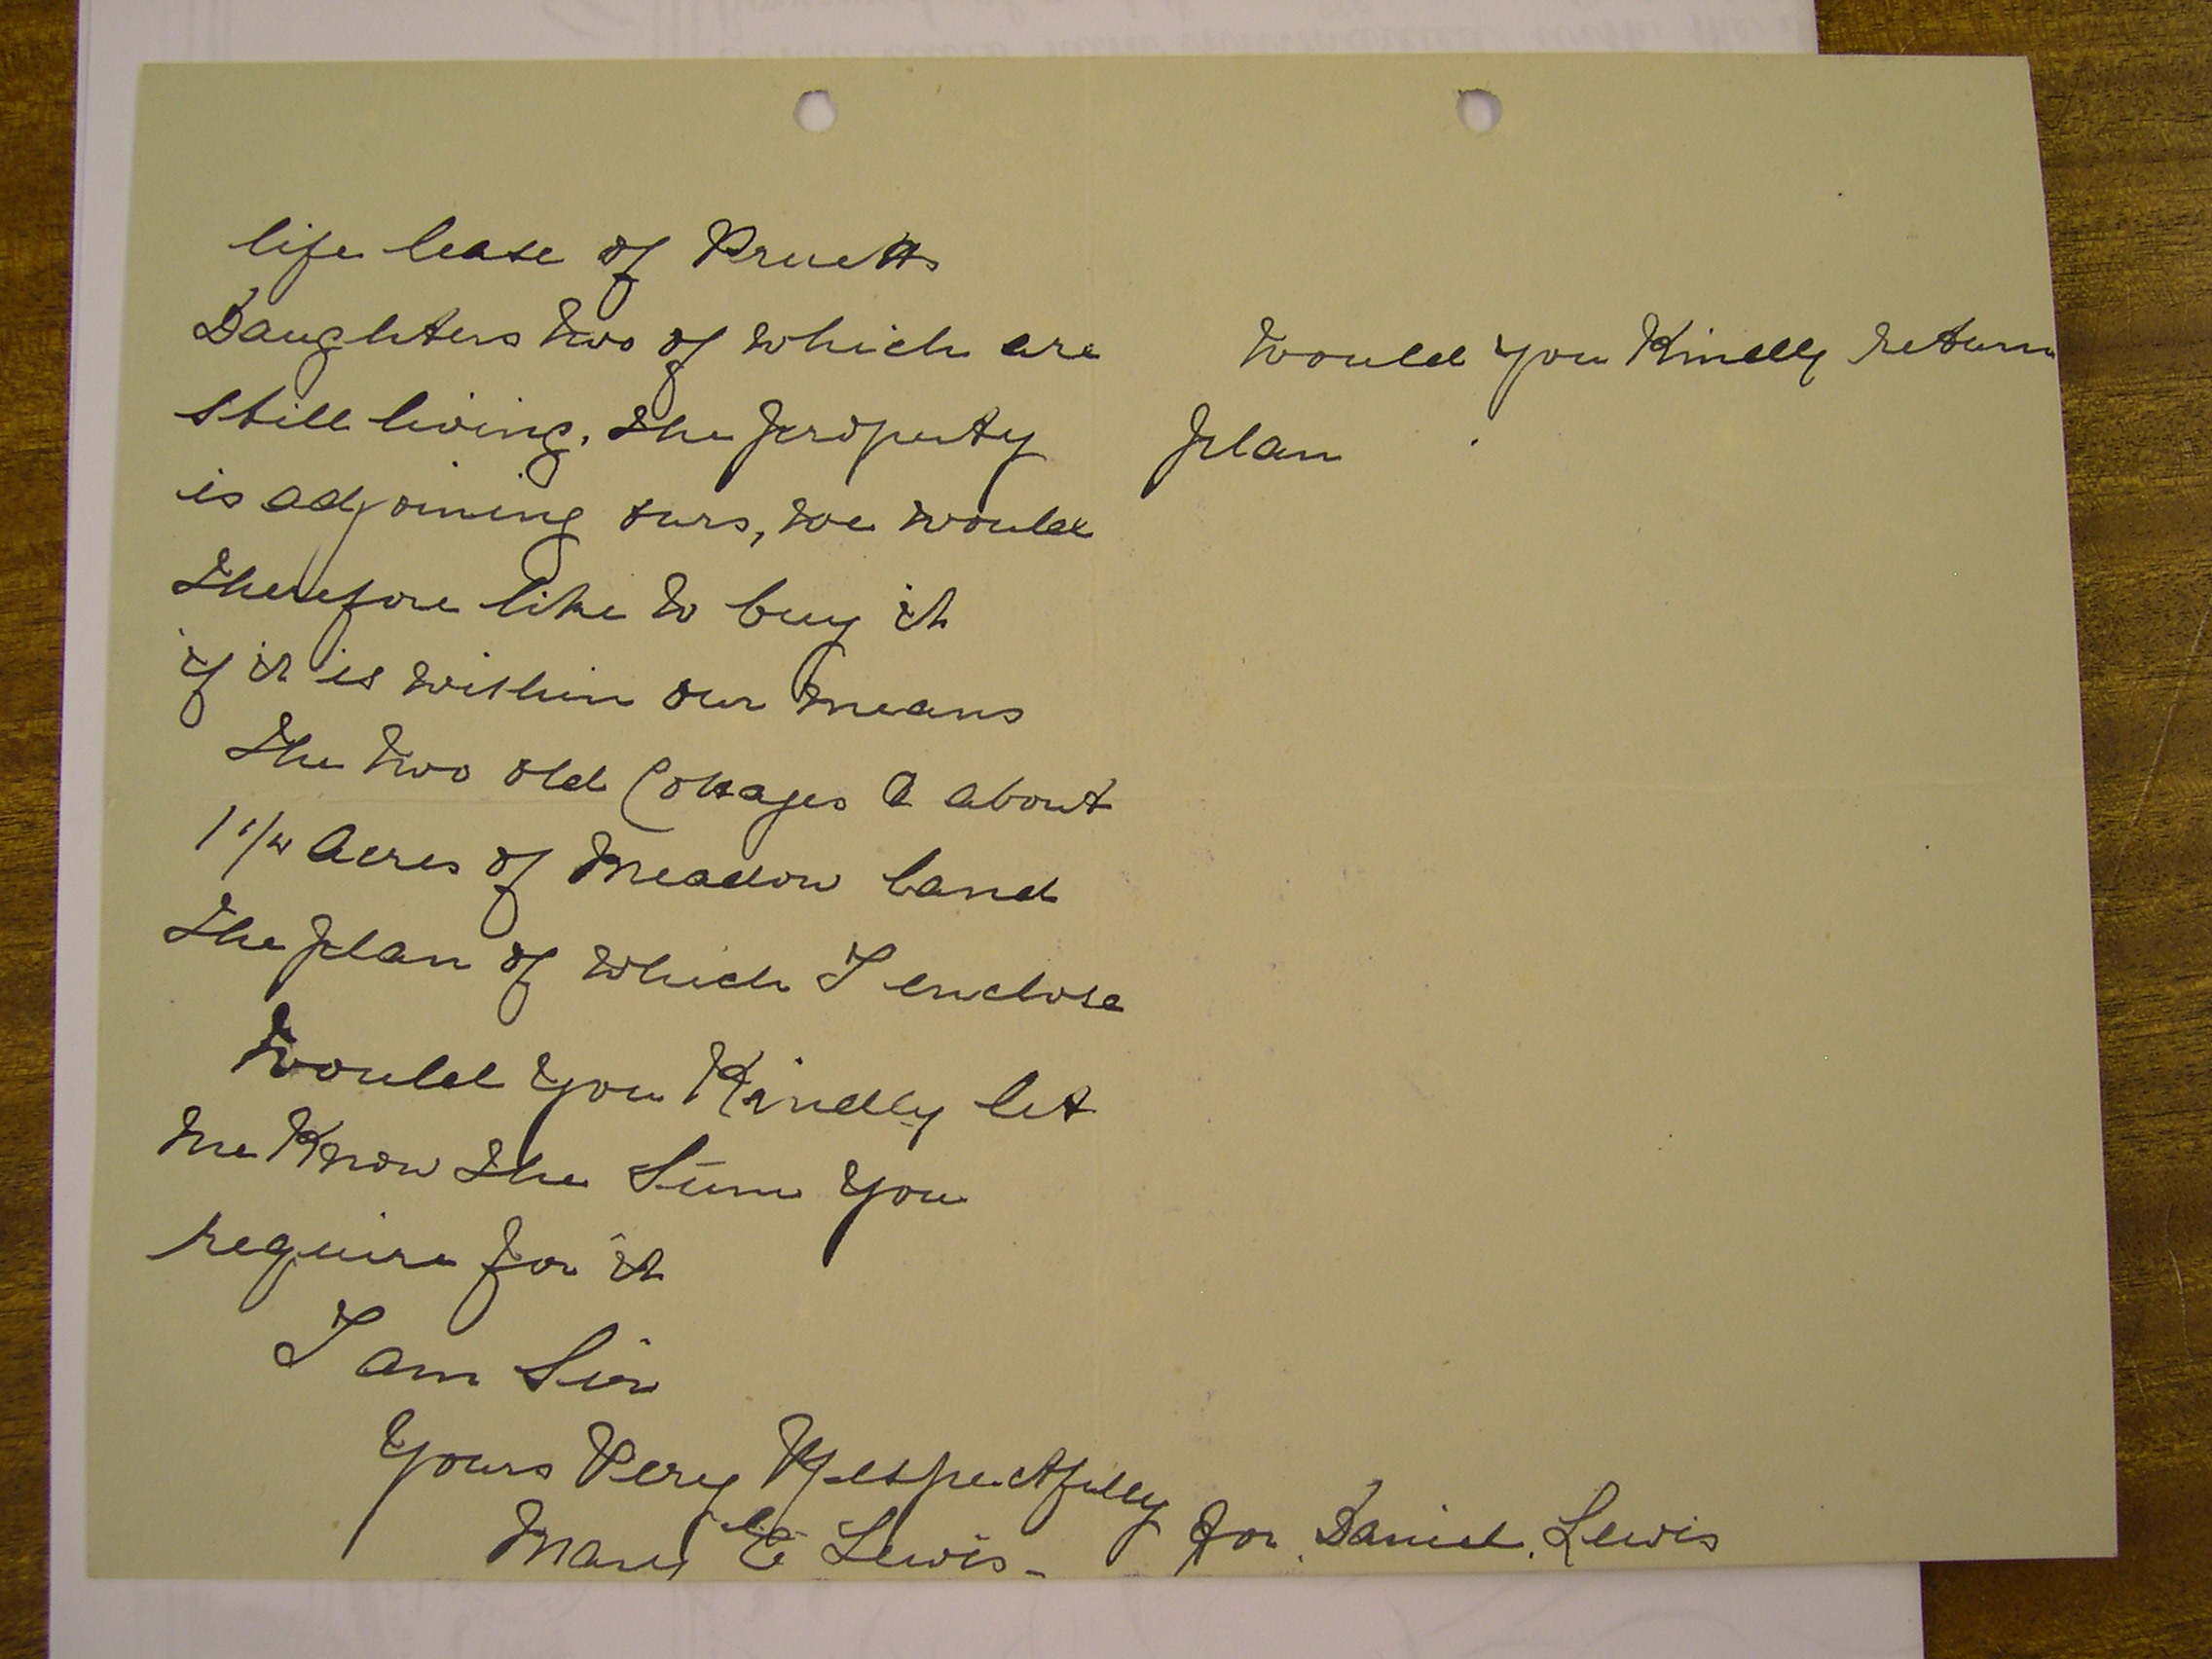 life lease of Pruetts
Daughters two of which are
still living. the property
is adjoining ours, we would
therefore like to buy it
if it is within our means
the two old Cottages & about
1 1/4 Acres of Meadow land
the plan of which I enclose
Would you Kindly let
me Know the Sum you
require for it
I am Sir
Yours Very Respectfully
Mary E Lewis - for Daniel Lewis
Would you Kindly return
plan